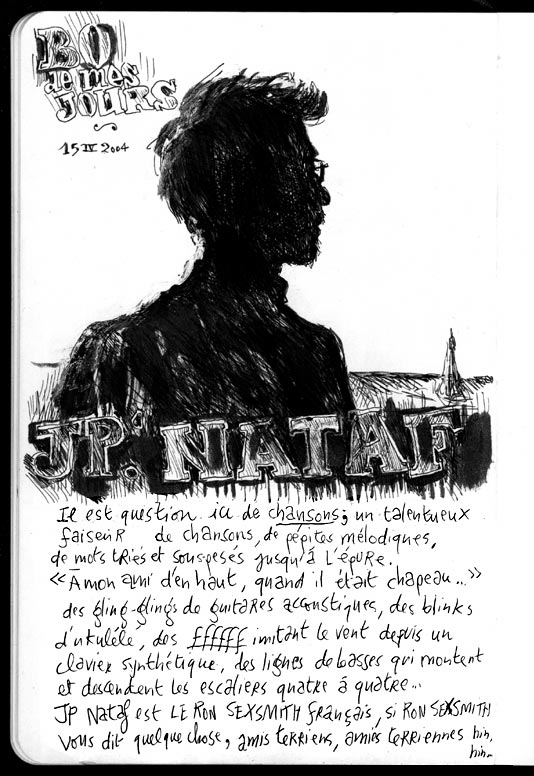 BO
de mes
JOURS
15 IV 2004
JP. NATAF
Il est question ici de chansons; un talentueux
faiseur de chansons, de pépites mélodiques,
de mots triés et sous-pesés jusqu'á L'épuRe.
«Amon ami d'en haut, quand il était chapeau...»
des gling-glings de guitares accoustiques, des blinks
d'ukulélé, des ffffff imitant le vent depuis un
clavier synthétique, des lignes de basses qui montent
et descendent les escaliers quatre á quatre...
JP Nataf est LE RON SEXSMITH français, si RON SEXSMITH
vous dit quelque chose, amis terriens, amies terriennes hin,
hin.